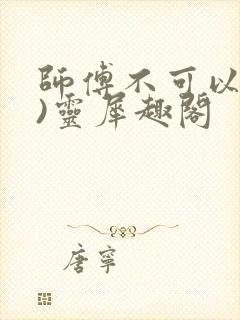 師傅不可以
)靈犀趣閣
唐寧